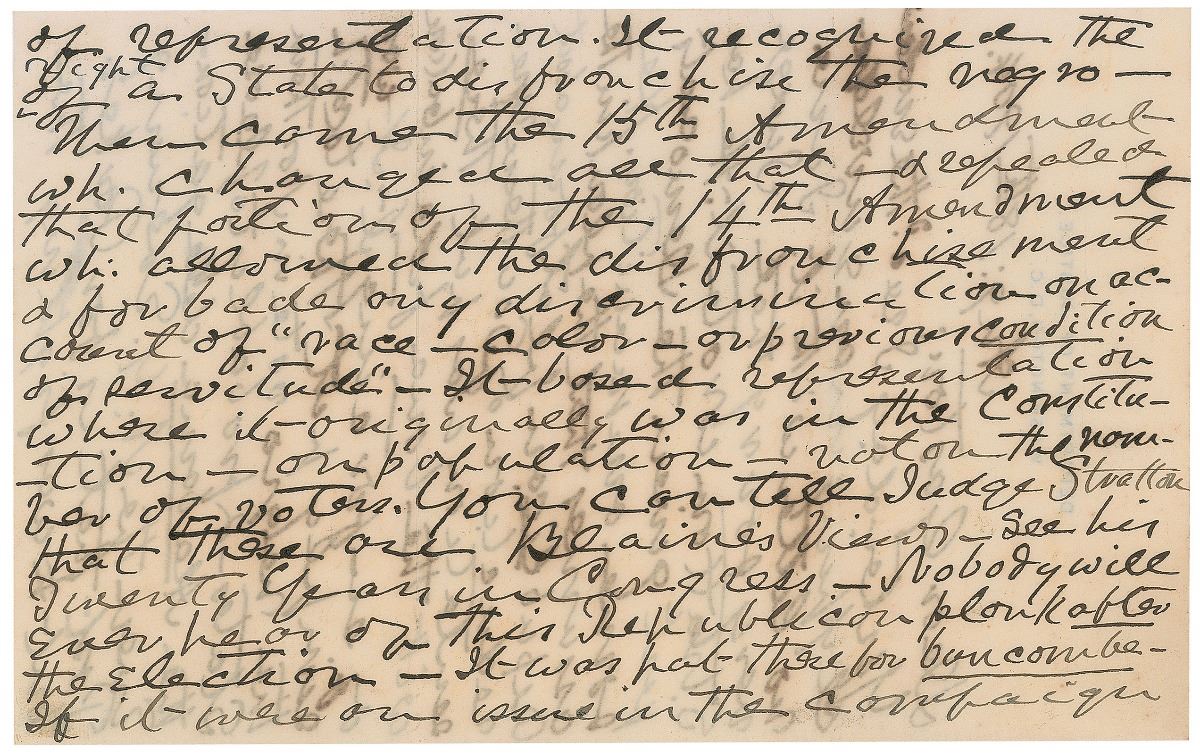 of representation. It recognized the
right
of a State to disfranchise the negro —
Then came the 15th Amendment
wh. changed all that — & repealed
that portion of the 14th Amendment
wh. allowed the disfranchisement
& forbade any discrimination on ac-
count of "race — color — or previous condition
of servitude" — It based representation
where it originally was in the Constitu-
-tion — on population — not on the num-
ber of voters. You can tell Judge Stratton
that these are Blaine's Views — see his
Twenty Years in Congress — Nobody will
ever hear of this Republican plank after
the Election — It was put there for buncombe —
If it were an issue in the campaign